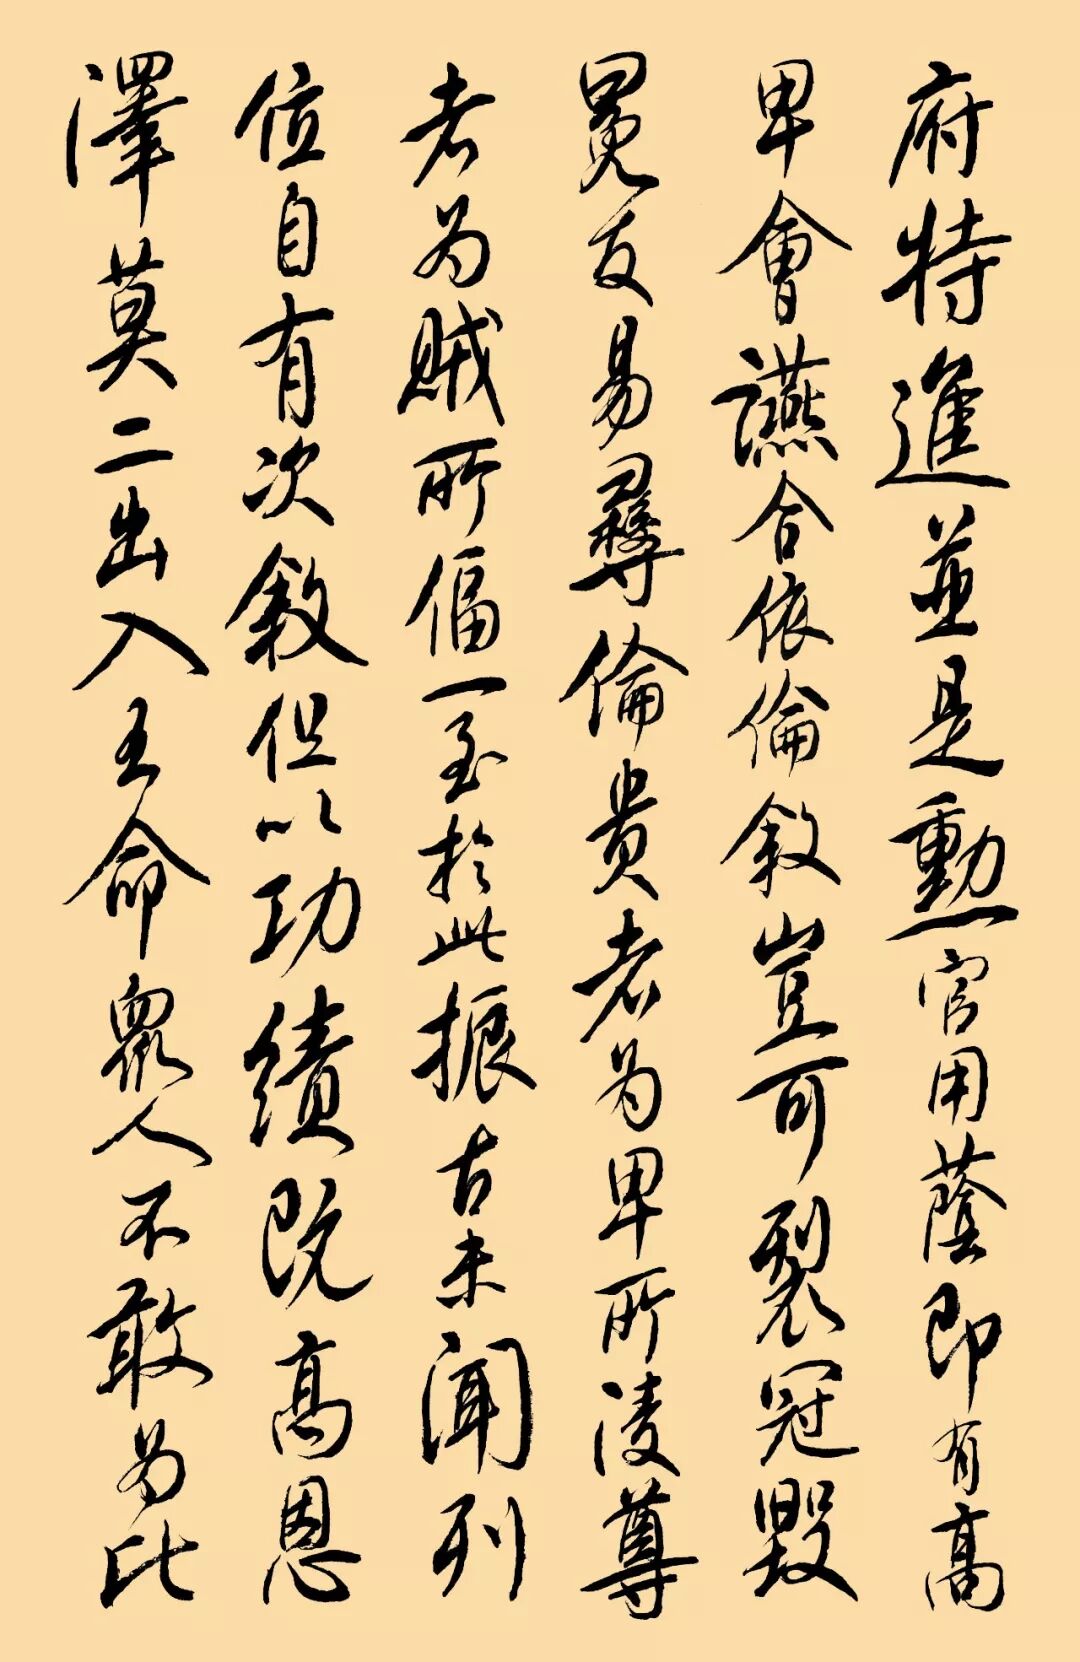 府特進並是勳官用蔭即有高
卑會讌合依倫敘豈可裂冠毀
冕反易彞倫貴者為卑所凌尊
者為賊所偪一至於此振古未聞列
位自有次敘但以功績既高恩
澤莫二出入王命眾人不敢為比